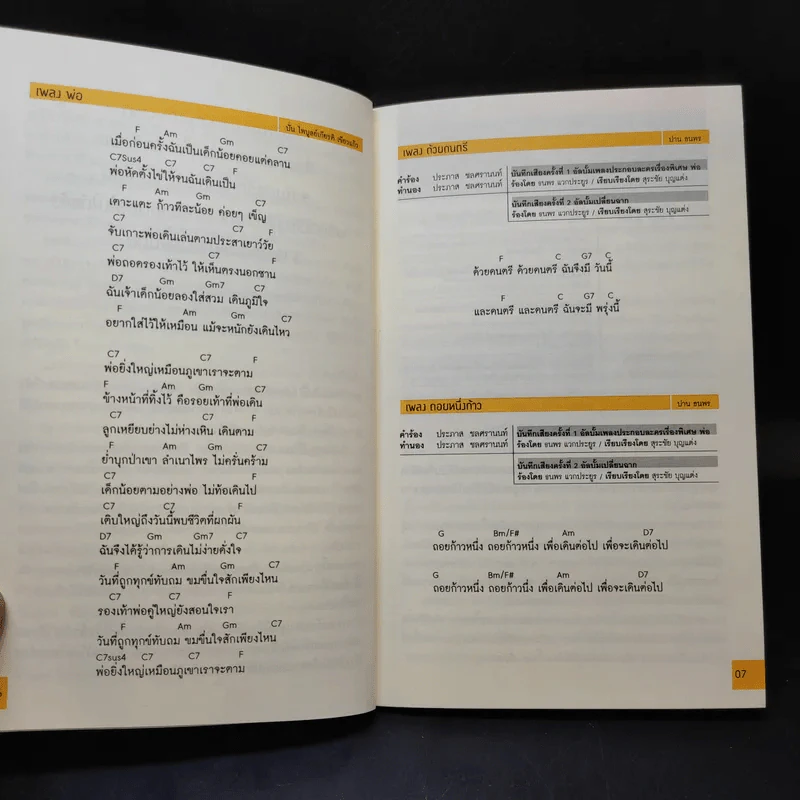 เพลง พ่อ
ปั่น ไพบูลย์เกียรติ เขียวแก้ว
F Am Gm C7
เมื่อก่อนครั้งฉันเป็นเด็กน้อยคอยแต่คลาน
C7Sus4 C7 C7 F
พ่อหัดตั้งไข่ให้จนฉันเดินเป็น
F Am Gm
เตาะแตะ ก้าวทีละน้อย ค่อยๆ เขิญ
C7 C7 F
จับเกาะพ่อเดินเล่นตามประสาเยาว์วัย
C7 C7 F
พ่อถอดรองเท้าไว้ ให้เห็นตรงนอกชาน
D7 Gm Gm7 C7
ฉันเจ้าเด็กน้อยลองใส่สวม เดินภูมิใจ
F Am Gm C7
อยากใส่ไว้ให้เหมือน แม้จะหนักยังเดินไหว
C7 C7 F
พ่อยิ่งใหญ่เหมือนภูเขาเราจะตาม
F Am Gm C7
ข้างหน้าที่ทิ้งไว้ คือรอยเท้าที่พ่อเดิน
C7 C7 F
ลูกเหยียบย่างไม่ห่างเหิน เดินตาม
F Am Gm C7
ย่ำบุกป่าเขา ลำเนาไพร ไม่ครั่นคร้าม
C7 C7 F
เด็กน้อยตามอย่างพ่อ ไม่ท้อเดินไป
C7 C7 F
เติบใหญ่ถึงวันนี้พบชีวิตที่ผกผัน
D7 Gm Gm7 C7
ฉันจึงได้รู้ว่าการเดินไม่ง่ายดั่งใจ
F Am Gm C7
วันที่ถูกทุกข์ทับถม ขมขื่นใจสักเพียงไหน
C7 C7 F
รองเท้าพ่อคู่ใหญ่ยังสอนใจเรา
F Am Gm C7
วันที่ถูกทุกข์ทับถม ขมขื่นใจสักเพียงไหน
C7sus4 C7 C7 F
พ่อยิ่งใหญ่เหมือนภูเขาเราจะตาม
เพลง ด้วยดนตรี
ปาน ธนพร
คำร้อง ประภาส ชลศรานนท์
ทำนอง ประภาส ชลศรานนท์
บันทึกเสียงครั้งที่ 1 อัลบั้มเพลงประกอบละครเรื่องพิเศษ พ่อ
ร้องโดย ธนพร แวกประยูร / เรียบเรียงโดย สุระชัย บุญแต่ง
บันทึกเสียงครั้งที่ 2 อัลบั้มเปลี่ยนฉาก
ร้องโดย ธนพร แวกประยูร / เรียบเรียงโดย สุระชัย บุญแต่ง
F C G7 C
ด้วยดนตรี ด้วยดนตรี ฉันจึงมี วันนี้
F C G7 C
และดนตรี และดนตรี ฉันจะมี พรุ่งนี้
เพลง ถอยหนึ่งก้าว
ปาน ธนพร
คำร้อง ประภาส ชลศรานนท์
ทำนอง ประภาส ชลศรานนท์
บันทึกเสียงครั้งที่ 1 อัลบั้มเพลงประกอบละครเรื่องพิเศษ พ่อ
ร้องโดย ธนพร แวกประยูร / เรียบเรียงโดย สุระชัย บุญแต่ง
บันทึกเสียงครั้งที่ 2 อัลบั้มเปลี่ยนฉาก
ร้องโดย ธนพร แวกประยูร / เรียบเรียงโดย สุระชัย บุญแต่ง
G Bm/F# Am D7
ถอยก้าวหนึ่ง ถอยก้าวหนึ่ง เพื่อเดินต่อไป เพื่อจะเดินต่อไป
G Bm/F# Am D7
ถอยก้าวหนึ่ง ถอยก้าวนึ่ง เพื่อเดินต่อไป เพื่อจะเดินต่อไป
07